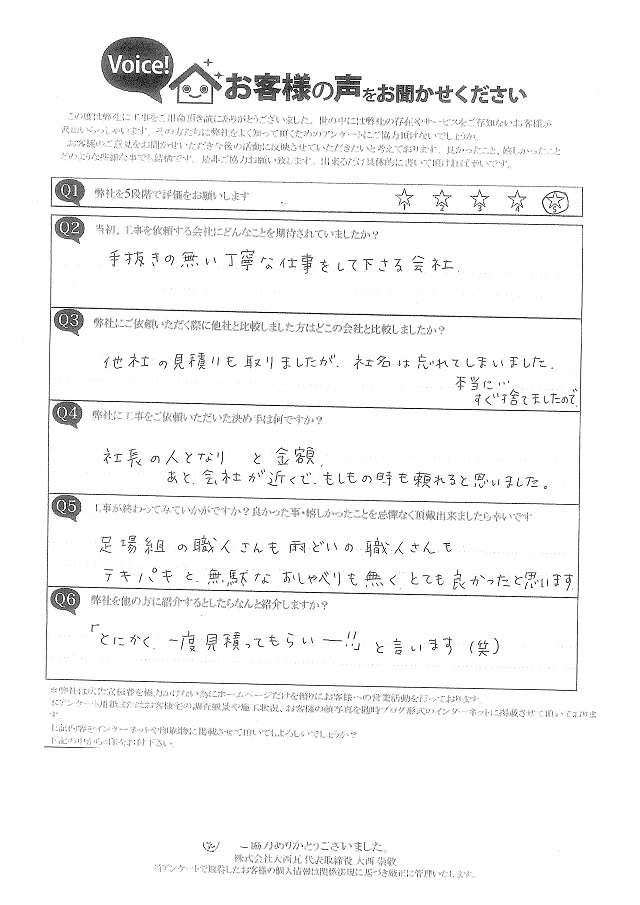 Voice!
お客様の声をお聞かせください
この度は弊社に工事をご用命頂き誠にありがとうございました。世の中には弊社の存在やサービスをご存知ないお客様が
沢山いらっしゃいます。その方たちに弊社をよく知って頂くためのアンケートにご協力頂けないでしょうか。
お客様のご意見をお聞かせいただき今後の活動に反映させていただきたいと考えております。良かったこと、嬉しかったこと
どのような些細な事でも結構です。是非ご協力お願い致します。出来るだけ具体的に書いて頂ければ幸いです。
Q1 弊社を5段階で評価をお願いします 1 2 3 4 5
Q2 当初、工事を依頼する会社にどんなことを期待されていましたか?
手抜きの無い丁寧な仕事をして下さる会社.
Q3 弊社にご依頼いただく際に他社と比較しました方はどこの会社と比較しましたか?
他社の見積りも取りましたが、社名は忘れてしまいました.
本当に…
すぐ捨てましたので
Q4 弊社に工事をご依頼いただいた決め手は何ですか?
社長の人となり と 金額.
あと、会社が近くで、もしもの時も頼れると思いました。
Q5 工事が終わってみていかがですか?良かった事・嬉しかったことを忌憚なく頂戴出来ましたら幸いです
足場組の職人さんも雨どいの職人さんも
テキパキと、無駄なおしゃべりも無く、とても良かったと思います.
Q6 弊社を他の方に紹介するとしたらなんと紹介しますか?
「とにかく、一度見積ってもらいー!!」と言います(笑)
※弊社は広告宣伝費を極力かけない為にホームページだけを頼りにお客様への営業活動を行っております。
※アンケート用紙またはお客様宅の調査風景や施工状況、お客様の顔写真を随時ブログ形式のインターネットに掲載させて頂いておりま
す。
上記内容をインターネットや印刷物に掲載させて頂いてもよろしいでしょうか?
下記の中から○印をお付下さい。
ご協力ありがとうございました。
株式会社大西瓦 代表取締役 大西 崇敬
当アンケートで取得したお客様の個人情報は関係法規に基づき厳正に管理いたします。